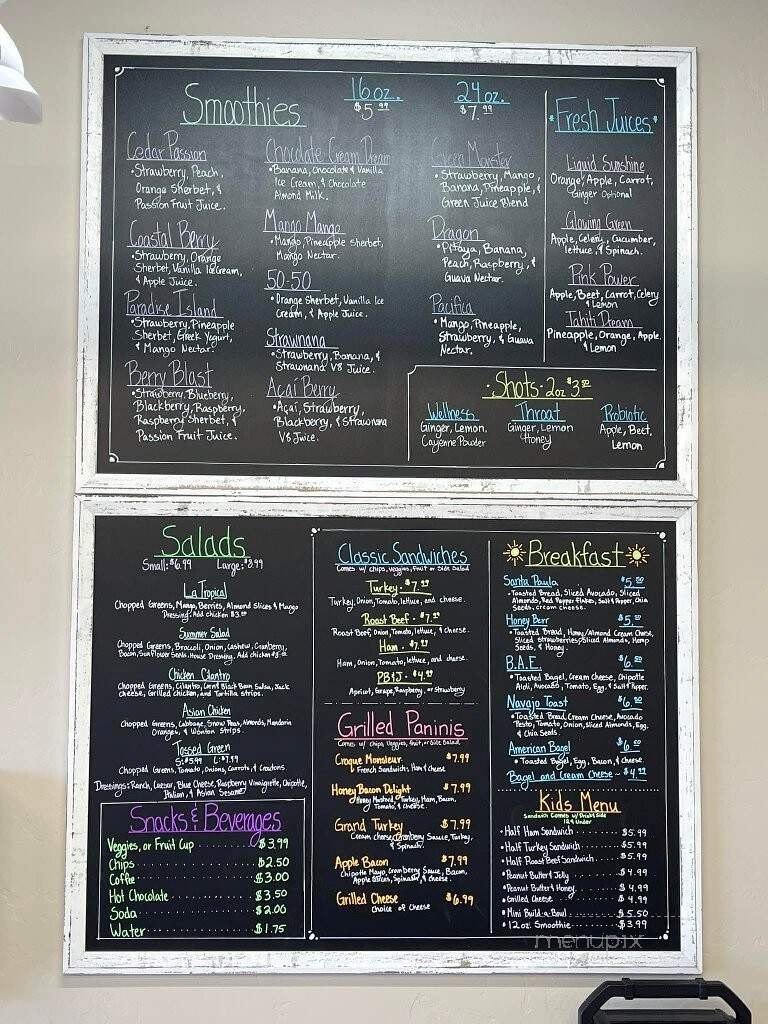 Smoothies
16 oz.
$5.99
24 oz.
$7.99
Cedar Passion
•Strawberry, Peach,
Orange Sherbet, &
Passion Fruit Juice.
Coastal Berry
•Strawberry, Orange
Sherbet, Vanilla Ice Cream,
& Apple Juice.
Paradise Island
•Strawberry, Pineapple
Sherbet, Greek Yogurt,
& Mango Nectar.
Berry Blast
•Strawberry, Blueberry,
Blackberry, Raspberry,
Raspberry Sherbet, &
Passion Fruit Juice.
Chocolate Cream Dream
•Banana, Chocolate & Vanilla
Ice Cream, & Chocolate
Almond Milk.
Mango Mango
•Mango, Pineapple Sherbet,
Mango Nectar.
50-50
•Orange Sherbet, Vanilla Ice
Cream, & Apple Juice.
Strawnana
•Strawberry, Banana, &
Strawnana V8 Juice.
Açaí Berry
•Açaí, Strawberry,
Blackberry, & Strawnana
V8 Juice.
Green Monster
•Strawberry, Mango,
Banana, Pineapple, &
Green Juice Blend
Dragon
•Pitaya, Banana,
Peach, Raspberry, &
Guava Nectar.
Pacifica
•Mango, Pineapple,
Strawberry, & Guava
Nectar.
•Fresh Juices•
Liquid Sunshine
Orange, Apple, Carrot,
Ginger Optional
Glowing Green
Apple, Celery, Cucumber,
lettuce, & Spinach.
Pink Power
Apple, Beet, Carrot, Celery
& Lemon
Tahiti Dream
Pineapple, Orange, Apple,
& Lemon
•Shots•2oz
Wellness
Ginger, Lemon,
Cayenne Powder
Throat
Ginger, Lemon
Honey
Probiotic
Apple, Beet,
Lemon
Salads
Small: $6.99 Large:
La Tropical
Chopped Greens, Mango, Berries, Almond Slices & Mango
Dressing. Add chicken
Summer Salad
Chopped Greens, Broccoli, Onion, Cashew, Cranberry,
Bacon, Sunflower Seeds, House Dressing. Add chicken
Chicken Cilantro
Chopped Greens, Cilantro, Corn & Black Bean Salsa, Jack
Cheese, Grilled chicken, and Tortilla strips.
Asian Chicken
Chopped Greens, Cabbage, Snow Peas, Almonds, Mandarin
Oranges, & Wonton Strips.
Tossed Green
S: $5.99 L: $7.99
Chopped Greens, Tomato, Onions, Carrots, & Croutons.
Dressings: Ranch, Caesar, Blue Cheese, Raspberry Vinaigrette, Chipotle,
Italian, & Asian Sesame
Snacks & Beverages
Veggies, or Fruit Cup $3.99
Chips $2.50
Coffee $3.00
Hot Chocolate $3.50
Soda $2.00
Water $1.75
Classic Sandwiches
Comes w/ chips, veggies, fruit or Side Salad
Turkey • $7.99
Turkey, Onion, Tomato, lettuce, and cheese.
Roast Beef • $7.99
Roast Beef, Onion, Tomato, lettuce, & cheese.
Ham • $7.99
Ham, Onion, Tomato, lettuce, and cheese.
PB&J • $4.99
Apricot, Grape, Raspberry, or Strawberry
Grilled Paninis
Comes w/ chips, Veggies, fruit, or Side Salad.
Croque Monsieur $7.99
French Sandwich: Ham & cheese
Honey Bacon Delight $7.99
Honey Mustard, Turkey, Ham, Bacon,
Tomato, & cheese.
Grand Turkey $7.99
Cream cheese, Cranberry Sauce, Turkey,
& Spinach.
Apple Bacon $7.99
Chipotle Mayo, Cranberry Sauce, Bacon,
Apple Slices, Spinach, & cheese.
Grilled Cheese $6.99
Choice of Cheese
Breakfast
Santa Paula
•Toasted Bread, Sliced Avocado, Sliced
Almonds, Red Pepper Flakes, Salt & Pepper, Chia
Seeds, cream cheese.
Honey Berr
•Toasted Bread, Honey/Almond Cream Cheese,
Sliced Strawberries, Sliced Almonds, Hemp
Seeds, & Honey.
B.A.E.
•Toasted Bagel, Cream Cheese, Chipotle
Aioli, Avocado, Tomato, Egg, & Salt & Pepper.
Navajo Toast
•Toasted Bread, Cream Cheese, Avocado
Pesto, Tomato, Onion, Sliced Almonds, Egg,
& Chia Seeds.
American Bagel
•Toasted Bagel, Egg, Bacon, & Cheese
Bagel and Cream Cheese
Kids Menu
Sandwich Comes w/ Drink & Side
12 & Under
•Half Ham Sandwich $5.99
•Half Turkey Sandwich $5.99
•Half Roast Beef Sandwich $5.99
•Peanut Butter & Jelly $4.99
•Peanut Butter & Honey $4.99
•Grilled Cheese $4.99
•Mini Build-a-Bowl $5.50
•12oz. Smoothie $3.99
menupix